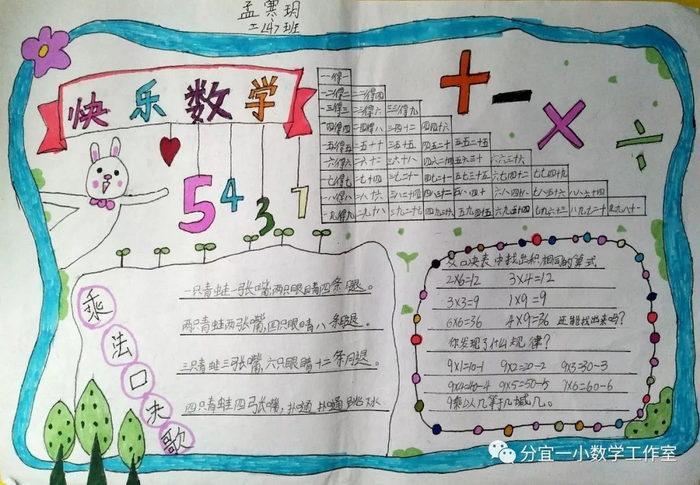 孟寒玥
二147班
快乐数学
＋ － × ÷
5 4 3 7
一一得一
一二得二 二二得四
一三得三 二三得六 三三得九
一四得四 二四得八 三四十二 四四十六
一五得五 二五十 三五十五 四五二十 五五二十五
一六得六 二六十二 三六十八 四六二十四 五六三十 六六三十六
一七得七 二七十四 三七二十一 四七二十八 五七三十五 六七四十二 七七四十九
一八得八 二八十六 三八二十四 四八三十二 五八四十 六八四十八 七八五十六 八八六十四
一九得九 二九十八 三九二十七 四九三十六 五九四十五 六九五十四 七九六十三 八九七十二 九九八十一
乘法口决歌
一只青蛙一张嘴,两只眼睛四条腿。
两只青蛙两张嘴,四只眼睛八条腿。
三只青蛙三张嘴,六只眼睛十二条腿。
四只青蛙四张嘴,扑通 扑通跳下水
口决表中找出积相同的算式
2×6=12 3×4=12
3×3=9 1×9=9
6×6=36 4×9=36 还能找出来吗?
你发现了什么规律?
9×1=10-1 9×2=20-2 9×3=30-3
9×4=40-4 9×5=50-5 9×6=60-6
9乘以几等几减几。
分宜一小数学工作室